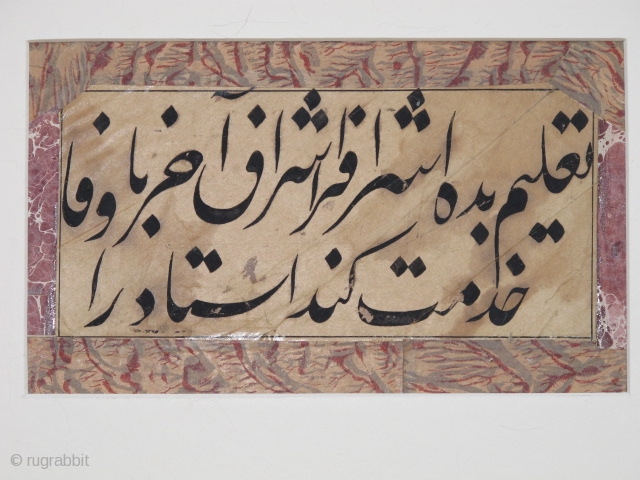 تعلیم بده اشراف را شراف آخر با وفا
خدمت کند استاد را
© rugrabbit